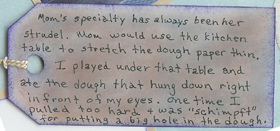 Mom's specialty has always been her
strudel. Mom would use the kitchen
table to stretch the dough paper thin.
I played under that table and
ate the dough that hung down right
in front of my eyes. One time I
pulled too hard & was "schimpft"
for putting a big hole in the dough.